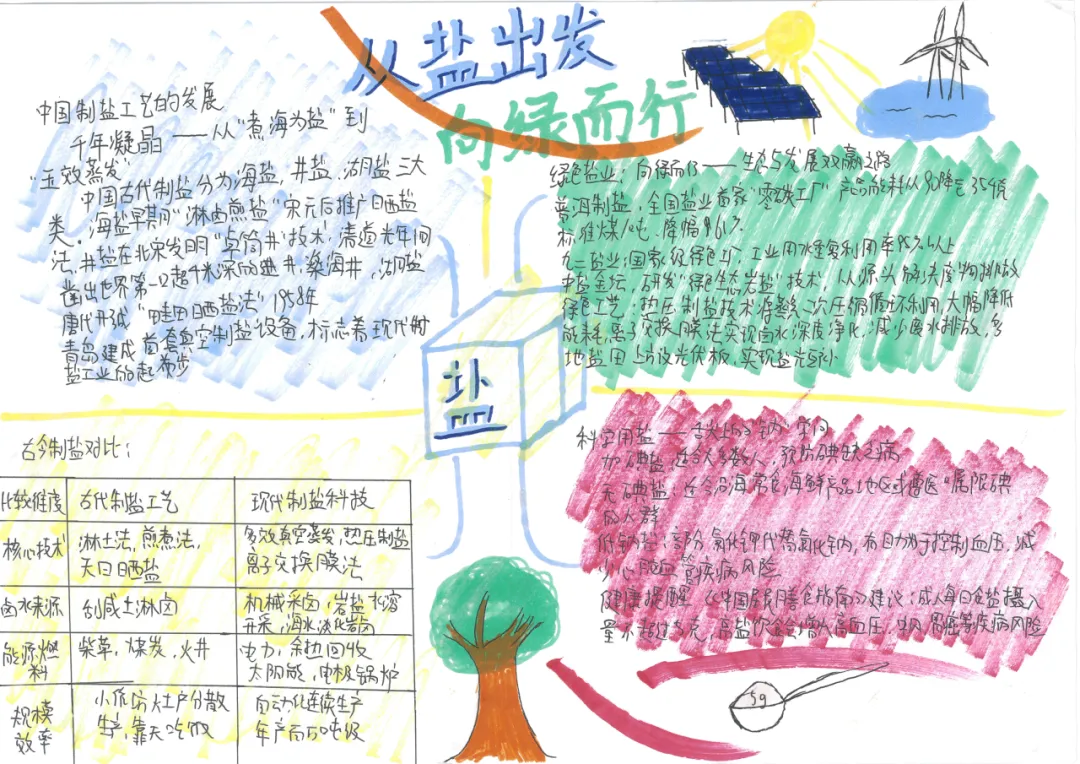 从盐出发
向绿而行
中国制盐工艺的发展
千年凝晶——从“煮海为盐”到
“五效蒸发”
中国古代制盐分为海盐,井盐,湖盐三大
类.海盐早期“淋卤煎盐”宋元后推广日晒盐
法,井盐在北宋发明“卓筒井”技术,清道光年间
凿出世界第一口超千米深的盐井,燊海井,湖盐
唐代形成“畦田晒盐法”1958年
青岛建成首套真空制盐设备,标志着现代制
盐工业的起步
绿色盐业:向绿而行——生态与发展双赢之路
普洱制盐,全国盐业首家“零碳工厂”产品能耗从90降至35.4优
标准煤/吨.降幅961%
九二盐业:国家级绿色工厂,工业用水重复利用率95%以上
中盐金坛,研发“绿色生态岩盐”技术,从源头解决废物排放
绿色工艺:热压制盐技术将蒸汽二次压缩循环利用,大幅降低
能耗,离子交换膜法实现卤水深度净化,减少废水排放,多
地盐田上方设光伏板,实现盐光互补
盐
古今制盐对比:
比较维度 古代制盐工艺 现代制盐科技
核心技术 淋土法,煎煮法, 多效真空蒸发,热压制盐
天日晒盐 离子交换膜法
卤水来源 刮咸土淋卤 机械采卤,岩盐水溶
开采,海水淡化浓卤
能源燃 柴草,煤炭,火井 电力,余热回收
料 太阳能,电极锅炉
规模 小作坊灶户分散 自动化连续生产
效率 生产,靠天吃饭 年产百万吨级
科学用盐——舌尖上的“钠”空间
加碘盐:适合大多数人,预防碘缺乏病
无碘盐:适合沿海常食海鲜产品地区或遵医嘱限碘
的人群
低钠盐:部分氯化钾代替氯化钠,有助于控制血压,减
少心脑血管疾病风险
健康提醒《中国居民膳食指南》建议:成人每日食盐摄入
量不超过5克,高盐饮食会增加高血压,
胃癌等疾病风险
5g